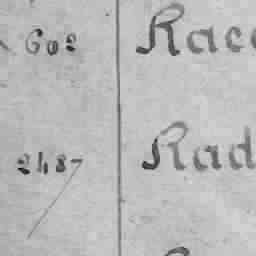 602 Race
2487 Rad